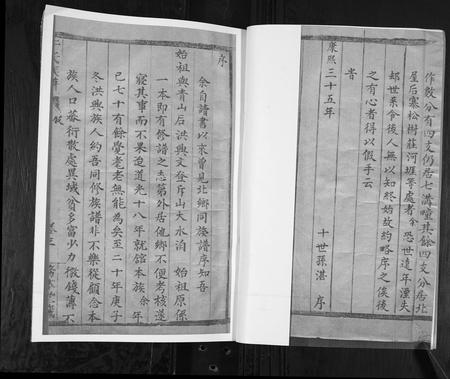 作散分有四支仍居七溝疃其餘四支分居北
星后寨松樹莊河堐等處者今恐世遠年湮失
却世系令後人無以知終始故約略序之俟後
之有心者得以假手云
旹
康熙三十五年
十世孫湛 序
序
余自讀書以來曾見北鄉同族譜序知吾
始祖與青山后洪與文登斥山大水泊 始祖原係
一本即有修譜之志第外居他鄉不便考核遂
寢其事而不果迨道光十八年就館本族 余年
已七十有餘覺耄老無能為矣至二十年庚子
冬洪與族人約吾同修族譜非不樂從顧念本
族人口蕃衍散處異域貧多富少力微錢薄不